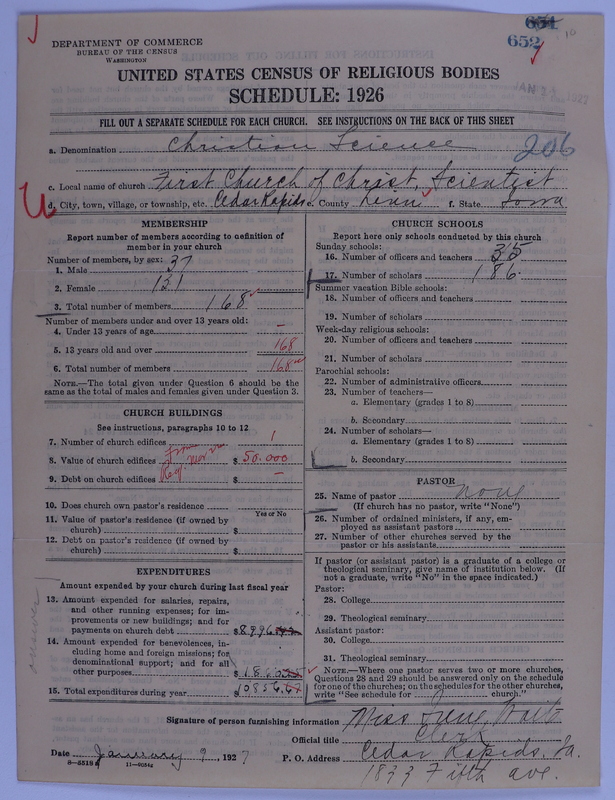 654
652
10
DEPARTMENT OF COMMERCE
BUREAU OF THE CENSUS
WASHINGTON
JAN 2 1927
UNITED STATES CENSUS OF RELIGIOUS BODIES
SCHEDULE: 1926
FILL OUT A SEPARATE SCHEDULE FOR EACH CHURCH. SEE INSTRUCTIONS ON THE BACK OF THIS SHEET
a. Denomination Christian Science
206
c. Local name of church First Church of Christ, Scientist
d. City, town, village, or township, etc. Cedar Rapids e. County Linn f. State Iowa
MEMBERSHIP
Report number of members according to definition of
member in your church
Number of members, by sex:
1. Male 37
2. Female 131
3. Total number of members 168
Number of members under and over 13 years old:
4. Under 13 years of age –
5. 13 years old and over 168
6. Total number of members 168
NOTE.—The total given under Question 6 should be the
same as the total of males and females given under Question 3.
CHURCH BUILDINGS
See instructions, paragraphs 10 to 12
7. Number of church edifices 1
8. Value of church edifices $ 50.000
9. Debt on church edifices $ –
10. Does church own pastor's residence
Yes or No
11. Value of pastor's residence (if owned by
church) $
12. Debt on pastor's residence (if owned by
church) $
EXPENDITURES
Amount expended by your church during last fiscal year
13. Amount expended for salaries, repairs,
and other running expenses; for im-
provements or new buildings; and for
payments on church debt $ 8996
14. Amount expended for benevolences, in-
cluding home and foreign missions; for
denominational support; and for all
other purposes $ 1860
15. Total expenditures during year $ 10856
CHURCH SCHOOLS
Report here only schools conducted by this church
Sunday schools:
16. Number of officers and teachers 35
17. Number of scholars 186
Summer vacation Bible schools:
18. Number of officers and teachers
19. Number of scholars
Week-day religious schools:
20. Number of officers and teachers
21. Number of scholars
Parochial schools:
22. Number of administrative officers
23. Number of teachers—
a. Elementary (grades 1 to 8)
b. Secondary
24. Number of scholars—
a. Elementary (grades 1 to 8)
b. Secondary
PASTOR
25. Name of pastor none
(If church has no pastor, write "None")
26. Number of ordained ministers, if any, em-
ployed as assistant pastors
27. Number of other churches served by the
pastor or his assistants
If pastor (or assistant pastor) is a graduate of a college or
theological seminary, give name of institution below. (If
not a graduate, write "No" in the space indicated.)
Pastor:
28. College
29. Theological seminary
Assistant pastor:
30. College
31. Theological seminary
NOTE.—Where one pastor serves two or more churches,
Questions 28 and 29 should be answered only on the schedule
for one of the churches; on the schedules for the other churches,
write "See schedule for church."
Signature of person furnishing information Miss
Official title Clerk
Date January 9, 1927 P. O. Address Cedar Rapids, Ia.
1833 Fifth ave.